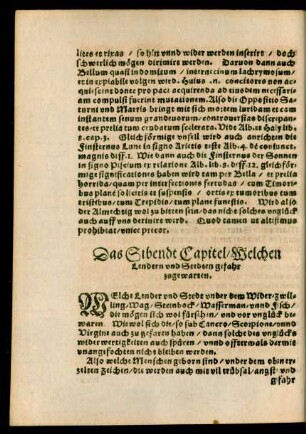 lites et rixas / so hin vnnd wider werden inserirt / doch
schwerlich mögen dirimirt werden. Daruon dann auch
Bellum quasi indomitum / internecinum lachrymosum /
et in expiabile volgen wird. Huius .n. concitores non ac
quiescent donec pro pace acquirenda ad eiusdem necessari-
am compulsi fuerint mutationem. Also die Oppositio Sa-
turni vnd Martis bringt mit sich mortem iuridam et cum
instantem senum grandeuorum / controuersias discrepan-
tes / et prelia tum crudatum sceletate. Vite Alb. et Haly lib. 8.
cap. 3. Gleichförmige vnfell wird auch anrichten die
Finsternus Lune in signo Arietis teste Alb. 4. de coniunct.
magnis diff. 1. Wie dann auch die Finsternus der Sonnen
in signo Piscium ex relatione Alb. lib. 2. diff. 12. gleichför-
mige significationes haben wird tam per Bella / et prelia
horrida / quam per intersectiones fretudas / cum Timoribus
tum plane solicitis et suspensis / ortis ex rumoribus tum
tristibus / tum Trepidis / tum plane funestis. Wird also
der Almechtig wol zu bitten sein / das nicht solches vnglück
auch auff vns deriuirt werd. Quod tamen ut altissimus
prohibiat / vnice precor.
Das Sibende Capitel / Welchen
Lendern vnd Stedten gefahr
zugewarten.
WElche Lender vnd Stedt vnder dem Wider / Zwil-
ling / Wag / Steinbock / Wasserman / vnnd Fisch /
die mögen sich wol fürsehn / vnd vor vnglück be-
waren. Wiewol sich die / so sub Cancro / Scorpione / vnnd
Virgine auch zu gefaren haben / dann solche des vnglücks
widerwertigkeiten auch spüren / vnnd offtermals darmit
vnangefochten nicht bleiben werden.
Also welche Menschen geborn sind / vnder dem ohn er-
zelten Zeichen / die werden auch mit vil trübsal / angst / vnd
gefahr